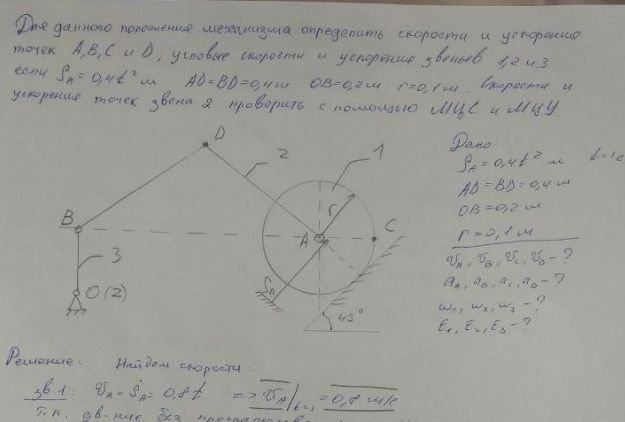 Для данного положения механизма определить скорости и ускорения
точек A, B, C и D, угловые скорости и ускорения звеньев 1, 2 и 3
если S_A = 0,4t² м AD=BD=0,4м OB=0,2м r=0,1м. Скорости и
ускорения точек звена 2 проверить с помощью МЦС и МЦУ.
D
2
1
B
r
A
C
3
S_A
O(2)
45°
Дано:
S_A = 0,4t² м t=1с
AD=BD=0,4м
OB=0,2м
r=0,1м
V_A, V_B, V_C, V_D - ?
a_A, a_B, a_C, a_D - ?
ω₁, ω₂, ω₃ - ?
ε₁, ε₂, ε₃ - ?
Решение: Найдем скорости:
зв 1: V_A = S_A = 0,8t => V_A|t=1 = 0,8 м/с
Т.к. дв-ние без